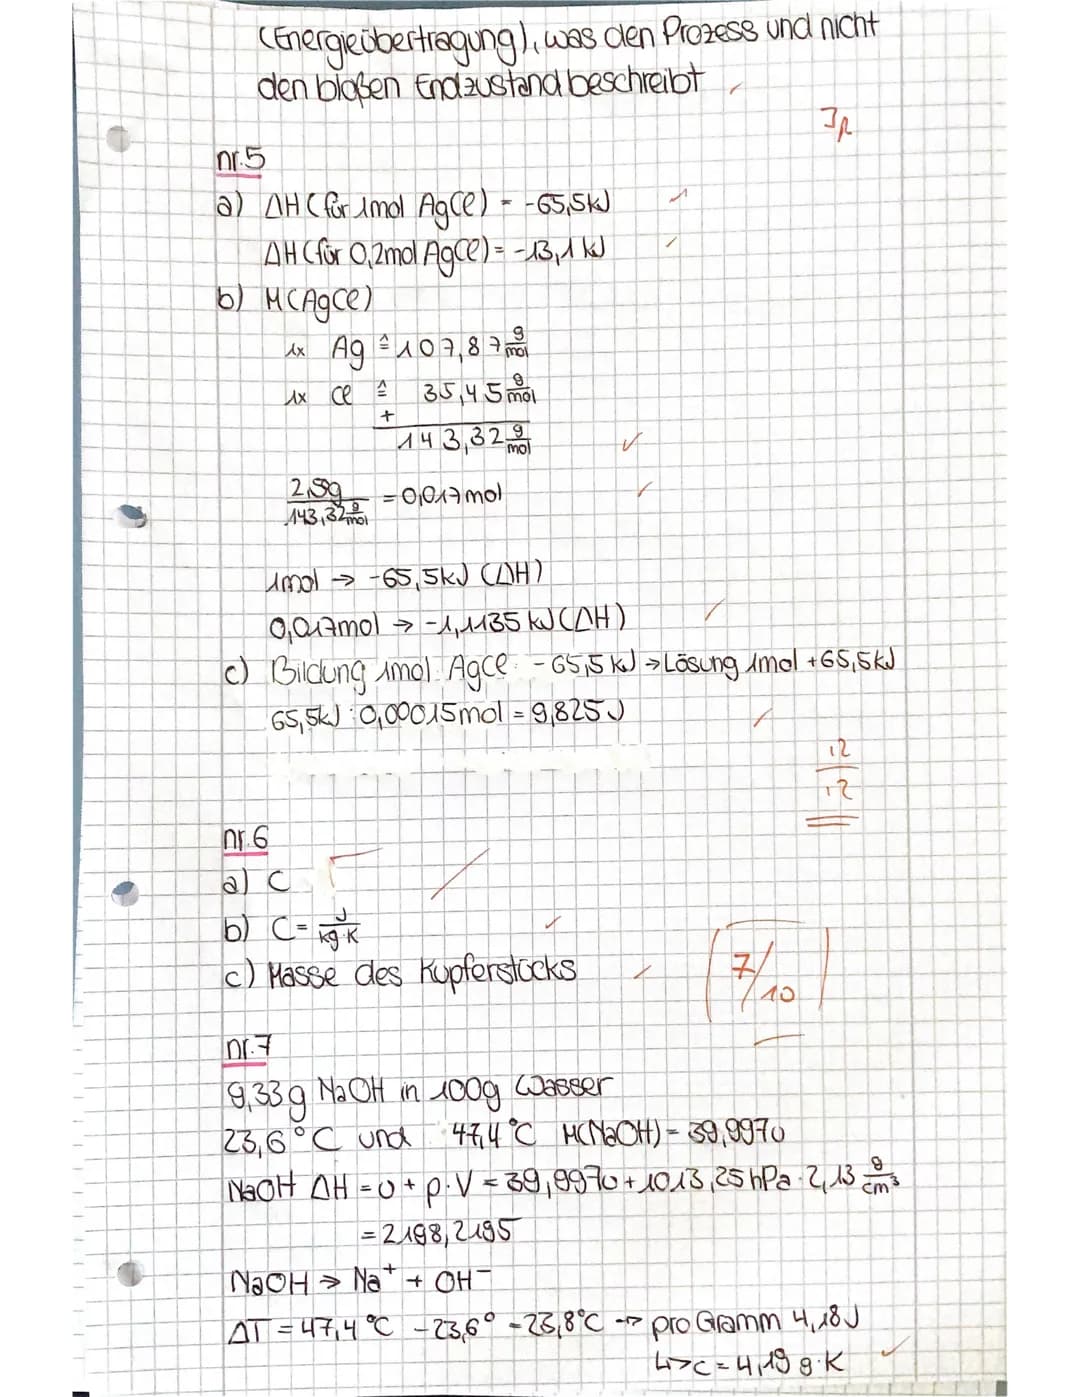 (Energieübertragung), was den Prozess und nicht
den bloßen Endzustand beschreibt
nr.5
a) ΔH (für 1mol AgCl) = -65,5kJ
ΔH (für 0,2mol AgCl) = -13,1 kJ
b) M(AgCl)
1x Ag ≙ 107,87 g/mol
1x Cl ≙ 35,45 g/mol
+
143,32 g/mol
2,5g / 143,32 g/mol = 0,017mol
1mol → -65,5kJ (ΔH)
0,017mol → -1,1135 kJ (ΔH)
c) Bildung 1mol AgCl -65,5 kJ → Lösung 1mol +65,5kJ
65,5kJ : 0,00015mol = 9,825J
12
12
nr.6
a) C
b) C = J/kg·K
c) Masse des Kupferstücks
7/10
nr.7
9,33g NaOH in 100g Wasser
23,6°C und 47,4°C M(NaOH) = 39,9970
NaOH ΔH = U + p·V = 39,9970 + 1013,25 hPa · 2,13 g/cm³
= 2198,2195
NaOH → Na⁺ + OH⁻
ΔT = 47,4°C - 23,6° = 23,8°C → pro Gramm 4,18J
↳ C = 4,19 g·K